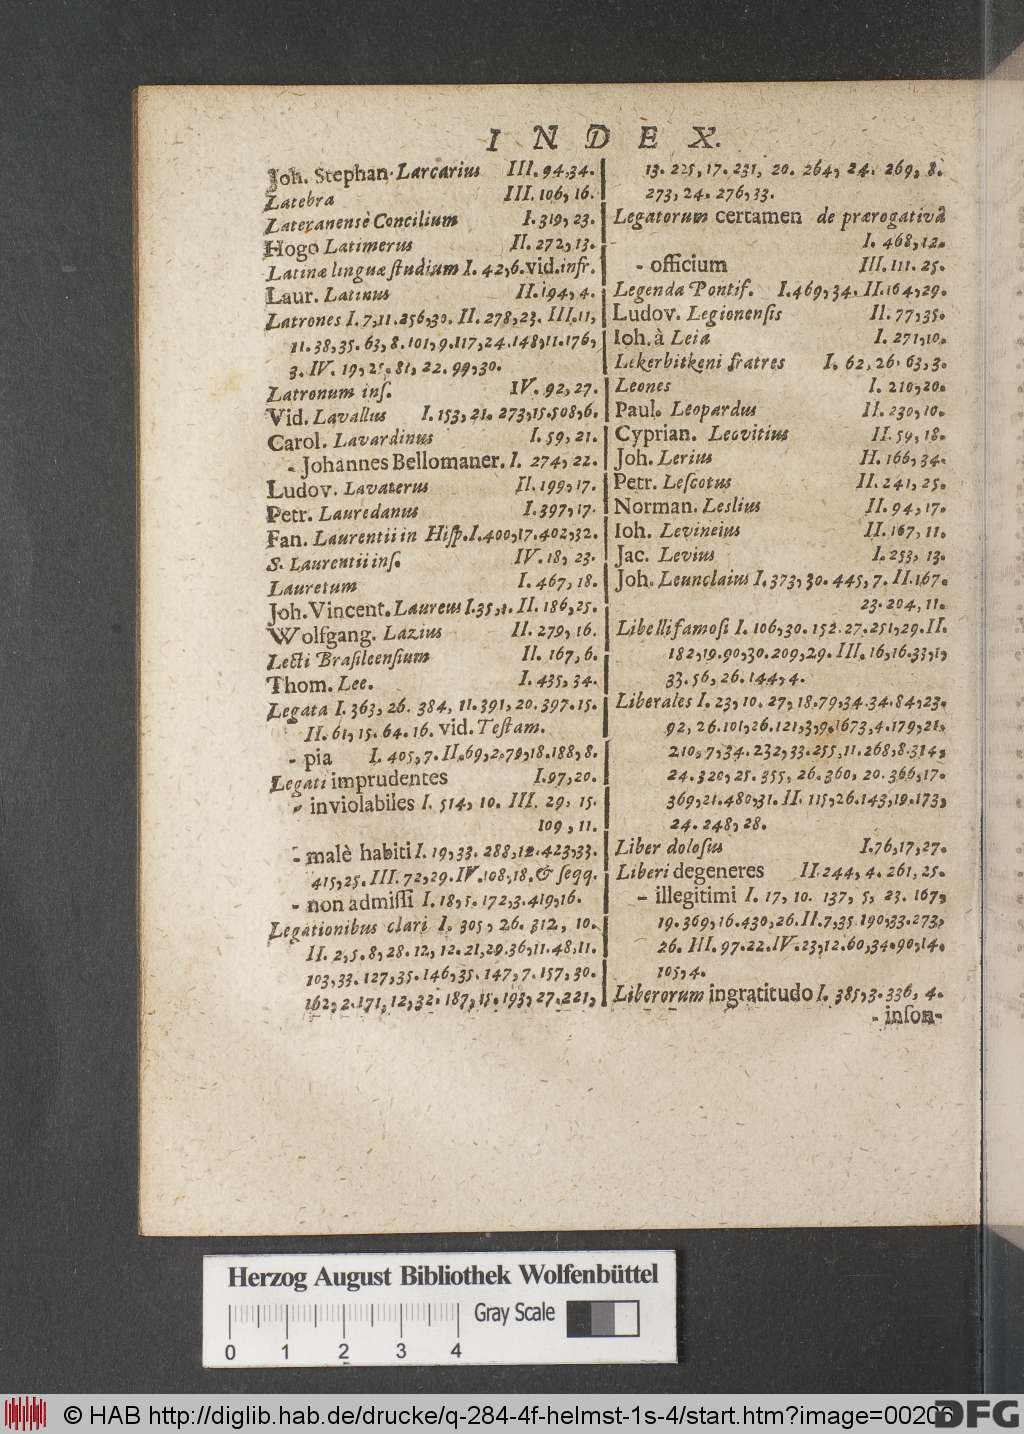 INDEX.
Joh. Stephan. Larcarius III. 94, 34.
Latebra III. 106, 16.
Lateranensè Concilium I. 319, 23.
Hogo Latimerus II. 272, 13.
Latinæ linguæ ſtudium I. 42, 6. vid. infr.
Laur. Latinus II. 194, 4.
Latrones I. 7, 11. 256, 30. II. 278, 23. III. 11,
11. 38, 35. 63, 8. 101, 9. 117, 24. 148, 11. 176,
3. IV. 19, 25. 81, 22. 99, 30.
Latronum inſ. IV. 92, 27.
Vid. Lavallus I. 153, 21. 273, 15. 508, 6.
Carol. Lavardinus I. 59, 21.
- Johannes Bellomaner. I. 274, 22.
Ludov. Lavaterus II. 199, 17.
Petr. Lauredanus I. 397, 17.
Fan. Laurentii in Hiſp. I. 400, 17. 402, 32.
S. Laurentii inſ. IV. 18, 23.
Lauretum I. 467, 18.
Joh. Vincent. Laureus I. 35, 1. II. 186, 25.
Wolfgang. Lazius II. 279, 16.
Lecti Braſileenſium II. 167, 6.
Thom. Lee. I. 435, 34.
Legata I. 363, 26. 384, 11. 391, 20. 397. 15.
II. 61, 15. 64. 16. vid. Teſtam.
- pia I. 405, 7. II. 69, 2. 79, 18. 188, 8.
Legati imprudentes I. 97, 20.
- inviolabiles I. 514, 10. III. 29, 15.
109, 11.
- malè habiti I. 19, 33. 288, 12. 423, 33.
415, 25. III. 72, 29. IV. 108, 18. & ſeqq.
- non admiſſi I. 18, 5. 172, 3. 419, 16.
Legationibus clari I. 305, 26. 312, 10.
II. 2, 5. 8, 28. 12, 12. 21, 29. 36, 11. 48, 11.
103, 33. 127, 35. 146, 35. 147, 7. 157, 30.
162, 2. 171, 12, 32. 187, 15. 193, 27. 221,
13. 225, 17. 231, 20. 264, 24. 269, 8.
273, 24. 276, 33.
Legatorum certamen de prærogativâ
I. 468, 12.
- officium III. 111. 25.
Legenda Pontif. I. 469, 34. II. 164, 29.
Ludov. Legionenſis II. 77, 35.
Ioh. à Leia I. 271, 10.
Lekerbitkeni fratres I. 62, 26. 63, 3.
Leones I. 210, 20.
Paul. Leopardus II. 230, 10.
Cyprian. Leovitius II. 59, 18.
Joh. Lerius II. 166, 34.
Petr. Leſcotus II. 241, 25.
Norman. Leslius II. 94, 17.
Ioh. Levineius II. 167, 11.
Jac. Levius I. 253, 13.
Joh. Leunclaius I. 373, 30. 445, 7. II. 167.
23. 204, 11.
Libelli famoſi I. 106, 30. 152. 27. 251, 29. II.
182, 19. 90, 30. 209, 29. III. 16, 16. 33, 1,
33. 56, 26. 144, 4.
Liberales I. 23, 10. 27, 18. 79, 34. 34. 84, 23.
92, 26. 101, 26. 121, 3, 9. 1673, 4. 179, 21.
210, 7, 34. 232, 33. 255, 11. 268, 8. 314,
24. 320, 25. 355, 26. 360, 20. 366, 17.
369, 21. 480, 31. II. 115, 26. 143, 19. 173,
24. 248, 28.
Liber doloſus I. 76, 17, 27.
Liberi degeneres II. 244, 4. 261, 25.
- illegitimi I. 17, 10. 137, 5, 23. 167,
19. 369, 16. 430, 26. II. 7, 35. 190, 33. 273,
26. III. 97. 22. IV. 23, 12. 60, 34. 90, 14.
105, 4.
Liberorum ingratitudo I. 385, 3. 336, 4.
- inſon-
Herzog August Bibliothek Wolfenbüttel
Gray Scale
0 1 2 3 4
© HAB http://diglib.hab.de/drucke/q-284-4f-helmst-1s-4/start.htm?image=00206
DFG